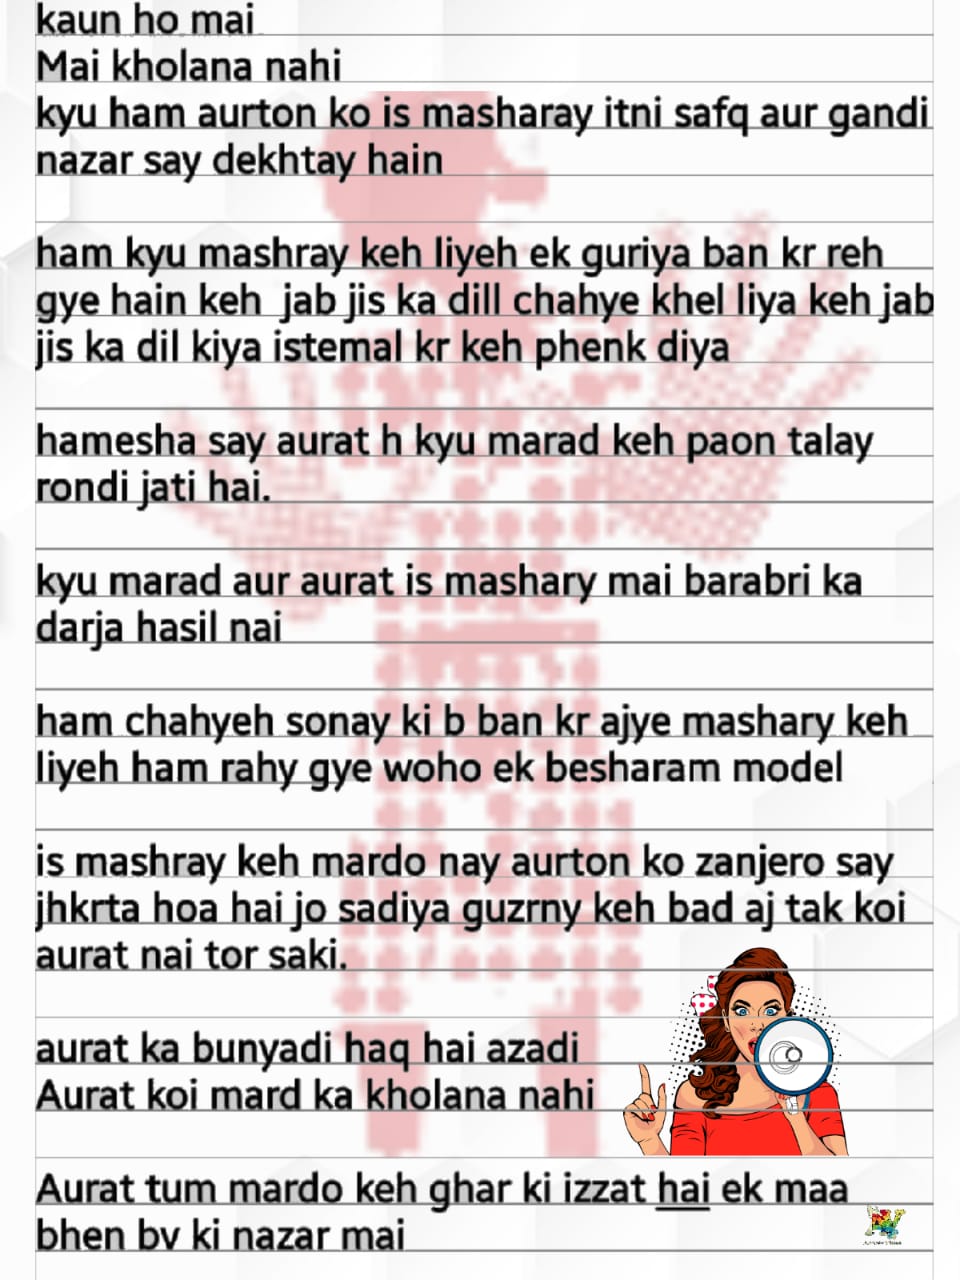 kaun ho mai
Mai kholana nahi
kyu ham aurton ko is masharay itni safq aur gandi
nazar say dekhtay hain
ham kyu mashray keh liyeh ek guriya ban kr reh
gye hain keh jab jis ka dill chahye khel liya keh jab
jis ka dil kiya istemal kr keh phenk diya
hamesha say aurat h kyu marad keh paon talay
rondi jati hai.
kyu marad aur aurat is mashary mai barabri ka
darja hasil nai
ham chahyeh sonay ki b ban kr ajye mashary keh
liyeh ham rahy gye woho ek besharam model
is mashray keh mardo nay aurton ko zanjero say
jhkrta hoa hai jo sadiya guzrny keh bad aj tak koi
aurat nai tor saki.
aurat ka bunyadi haq hai azadi
Aurat koi mard ka kholana nahi
Aurat tum mardo keh ghar ki izzat hai ek maa
bhen bv ki nazar mai